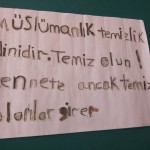 müslümanlık temizlik
dinidir. Temiz olun!
cennete ancak temiz
olanlar girer